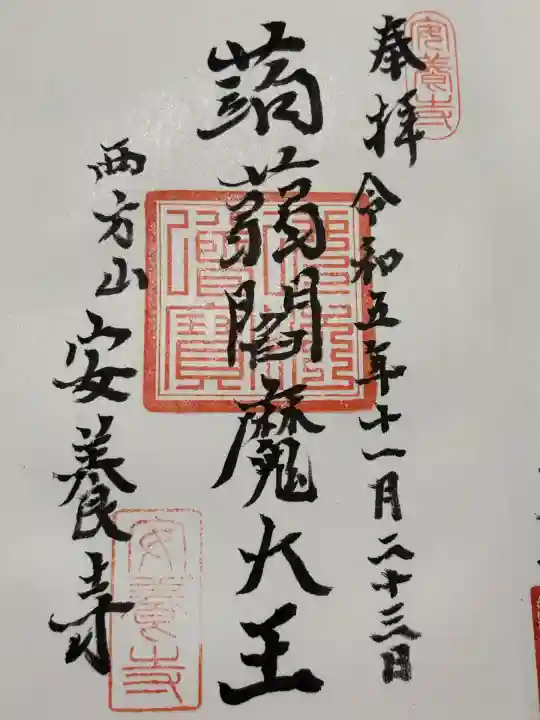 奉拝 令和五年十一月二十三日
蒟蒻閻魔大王
西方山 安養寺
安養寺
安養寺
佛法僧寶